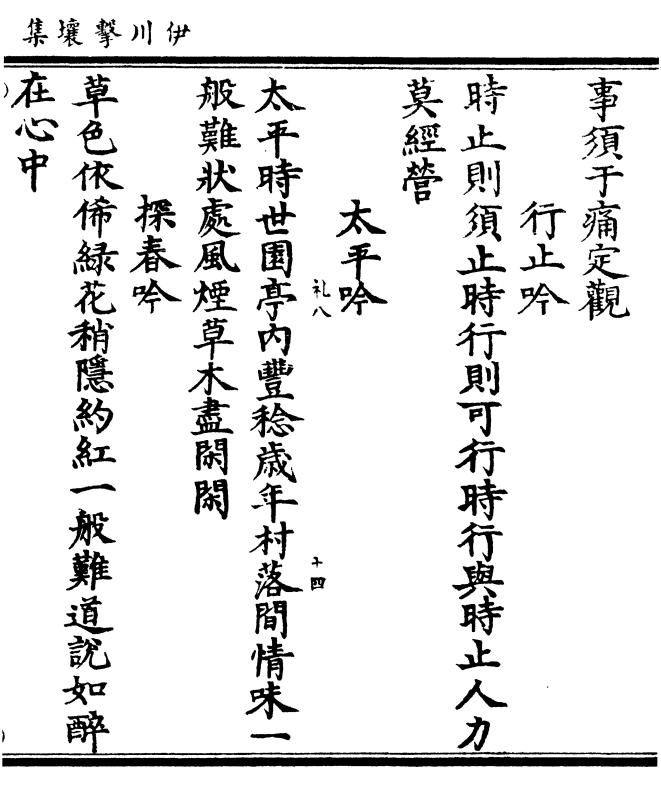 伊川擊壤集
事須于痛定觀
行止吟
時止則須止時行則可行時行與時止人力
莫經營
太平吟
礼八
十四
太平時世園亭內豐稔歲年村落間情味一
般難狀處風煙草木盡閑閑
探春吟
草色依俙緑花稍隱約紅一般難道說如醉
在心中